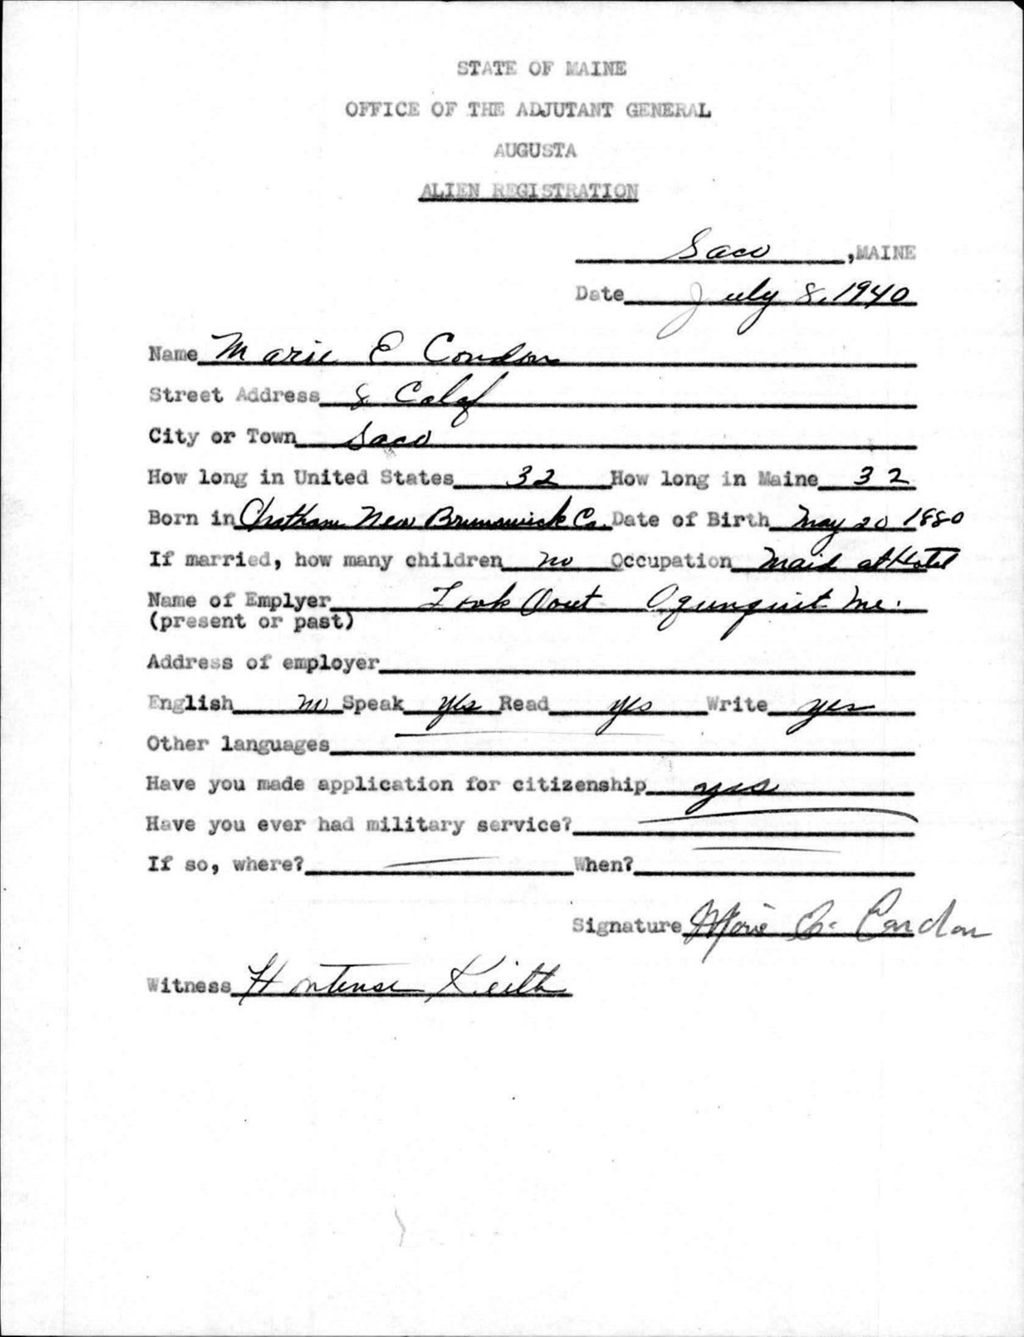 STATE OF MAINE
OFFICE OF THE ADJUTANT GENERAL
AUGUSTA
ALIEN REGISTRATION
Saco, MAINE
Date July 8, 1940
Name Marie E Condon
Street Address 8 Calef
City or Town Saco
How long in United States 32 How long in Maine 32
Born in Chatham New Brunswick Ca. Date of Birth May 20 1880
If married, how many children no Occupation Maid at Hotel
Name of Emplyer Look Oout Ogunquit Me.
(present or past)
Address of employer
English no Speak yes Read yes Write yes
Other languages
Have you made application for citizenship yes
Have you ever had military service?
If so, where? When?
Signature Marie Condon
Witness Hortense Keith